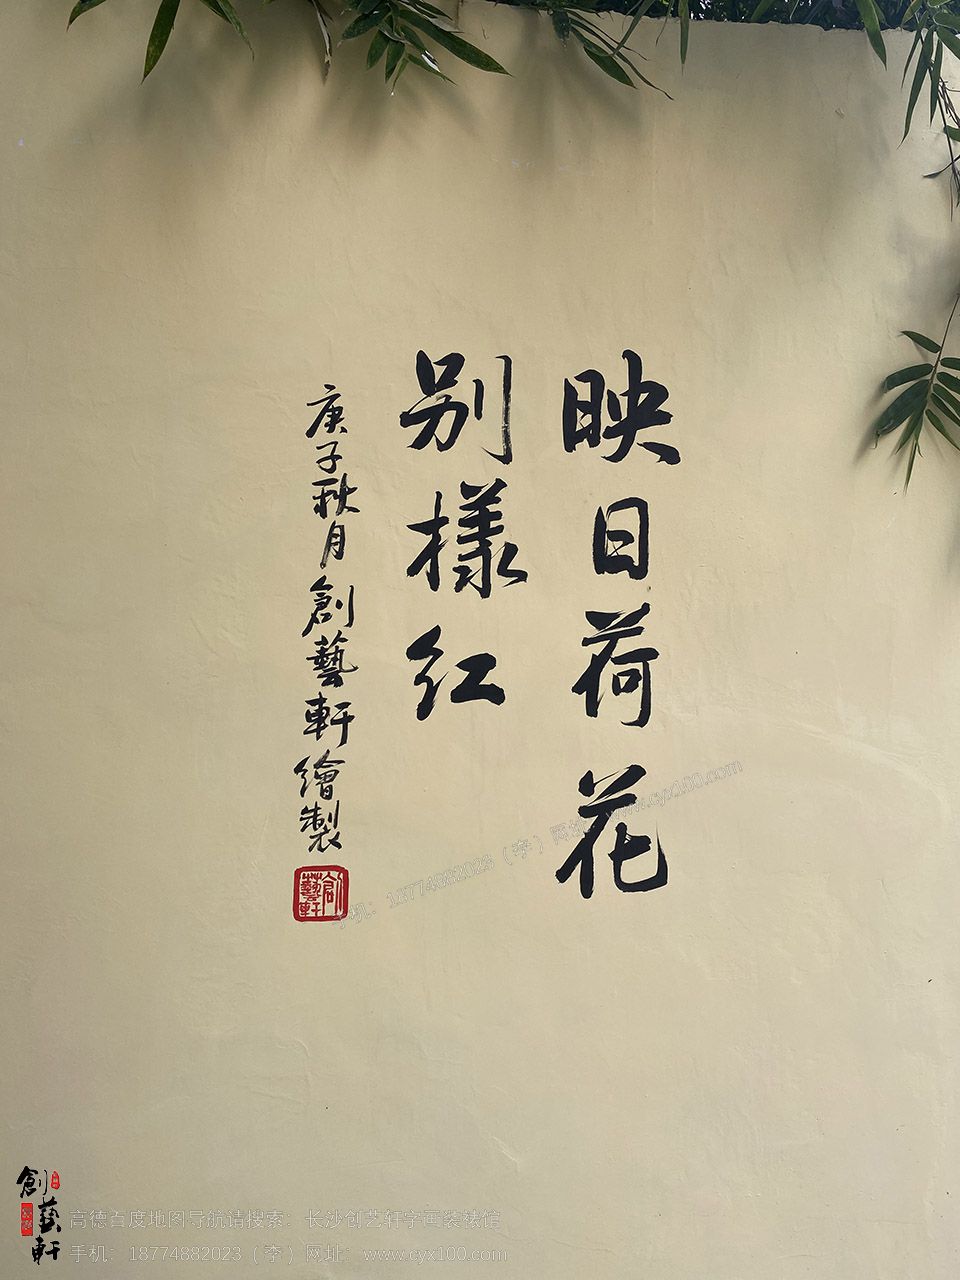 映日荷花
别樣红
庚子秋月創藝軒繪製
創藝軒
手机：18774882023（李）网址：www.cyx100.com
創藝軒
高德百度地图导航请搜索：长沙创艺轩字画装裱馆
手机：18774882023（李）网址：www.cyx100.com